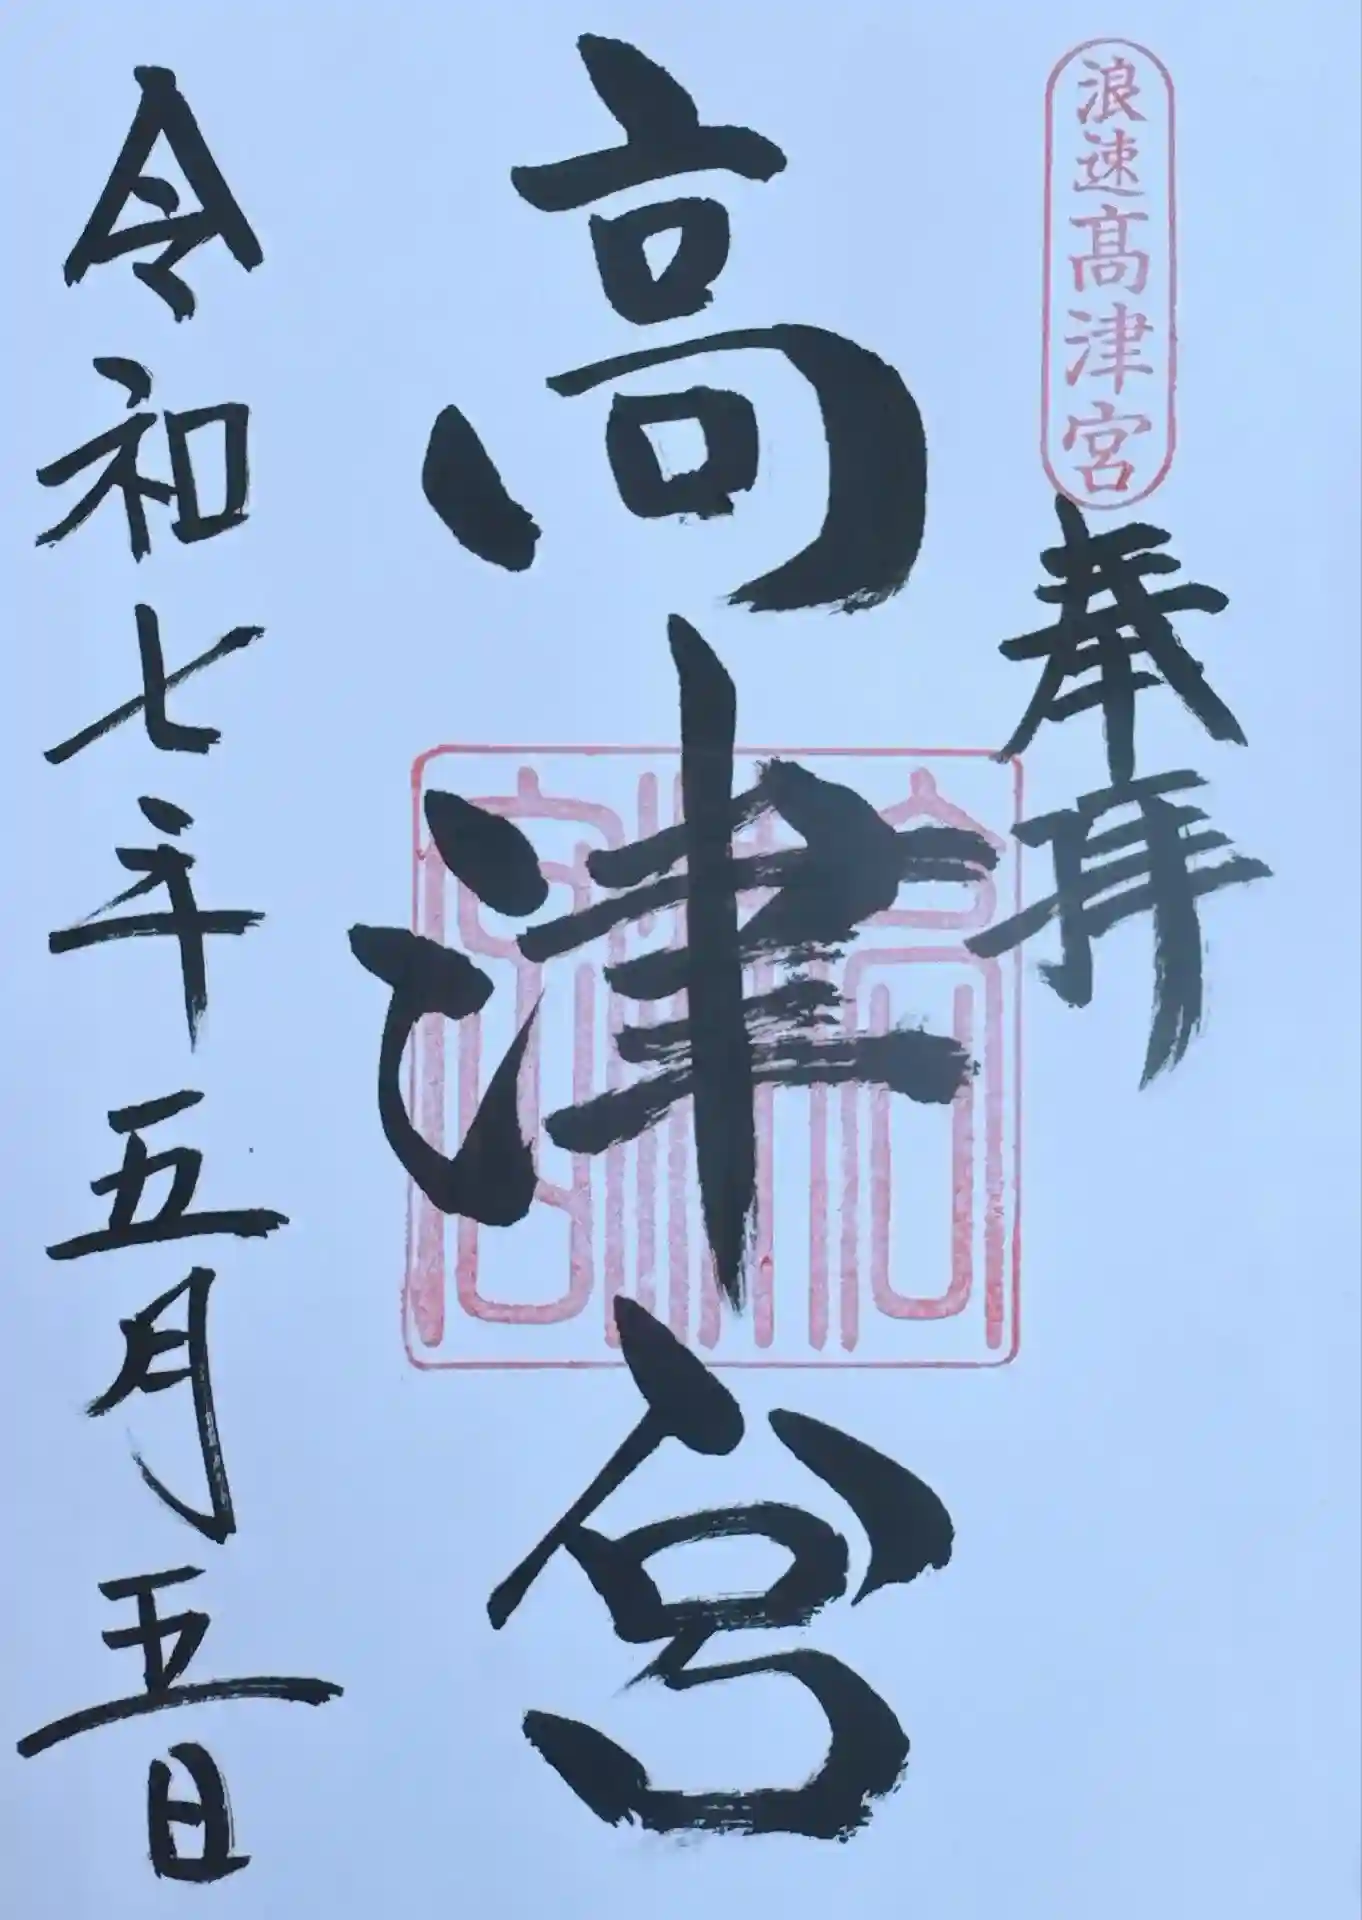 浪速高津宮
奉拝
高津宮
高津宮
令和七年五月五日